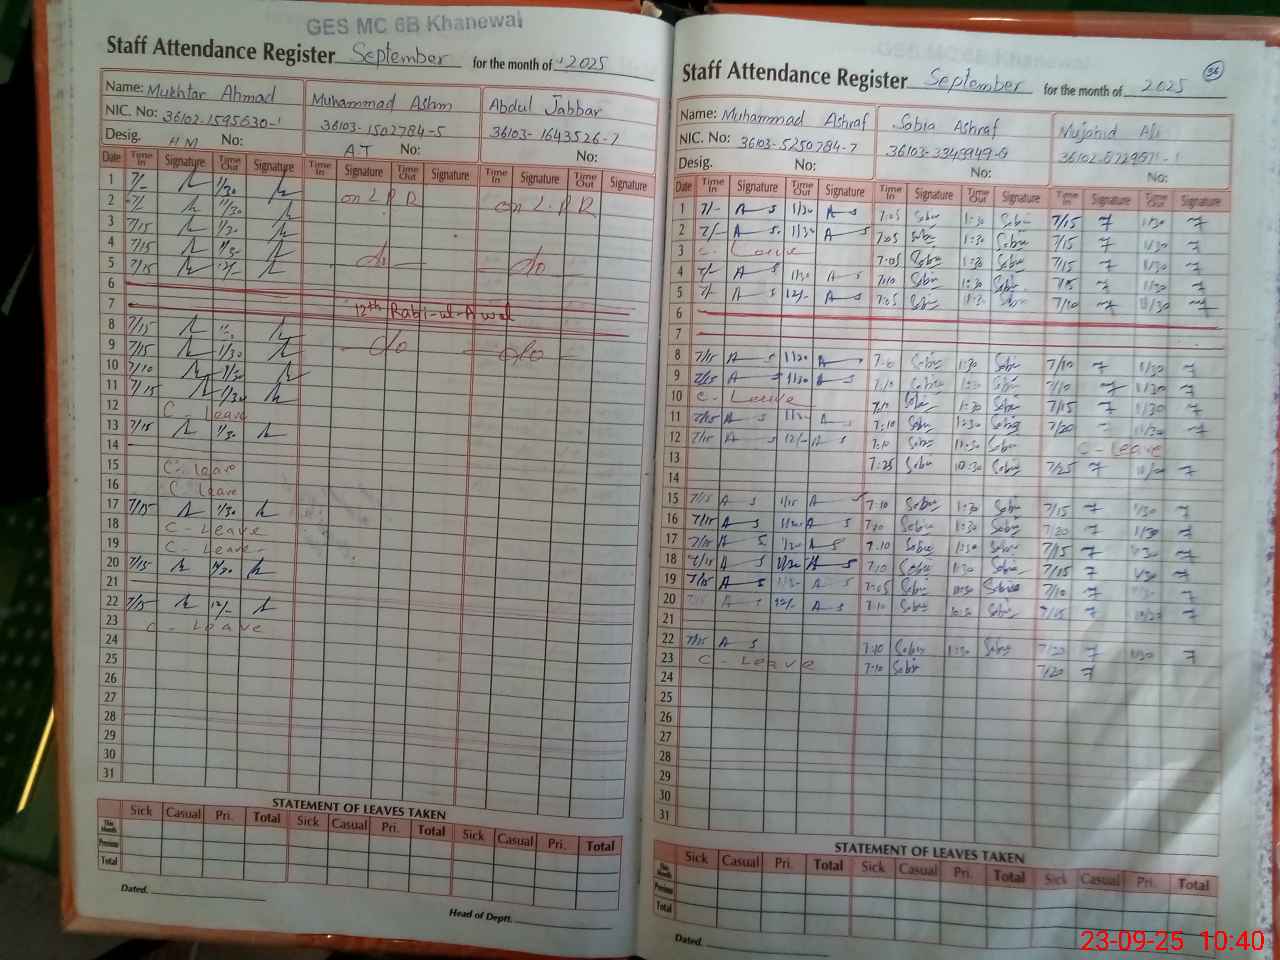 GES MC 6B Khanewal
Staff Attendance Register September for the month of 2025
Name: Mukhtar Ahmad Muhammad Asim Abdul Jabbar
NIC. No: 36102-1595630-1 36103-1502784-5 36103-1643526-7
Desig. HM No: AT No: No:
Date Time In Signature Time Out Signature Time In Signature Time Out Signature Time In Signature Time Out Signature
1 7/- 1/30 on LPR on L.PR
2 7/- 1/30
3 7/15 1/30
4 7/15 1/30
5 7/15 12/- do do
6
7 12th Rabi-ul-Awal
8 7/15
9 7/15 1/30 do do
10 7/10 1/30
11 7/15 1/30
12 C - Leave
13 7/15 1/30
14
15 C - leave
16 C leave
17 7/15 1/30
18 C - Leave
19 C - Leave
20 7/15 11/30
21
22 7/15 12/-
23 C - Leave
24
25
26
27
28
29
30
31
STATEMENT OF LEAVES TAKEN
Sick Casual Pri. Total Sick Casual Pri. Total Sick Casual Pri. Total
This Month
Previous
Total
Dated.
Head of Deptt.
36
Staff Attendance Register September for the month of 2025
Name: Muhammad Ashraf Sobia Ashraf Mujahid Ali
NIC. No: 36103-5250784-7
Desig. No: No: No:
Date Time In Signature Time Out Signature Time In Signature Time Out Signature Time In Signature Time Out Signature
1 7/- A s 1/30 A s 7:05 Sobia 1:30 Sobia 7/15 1/30
2 7/- A s 1/30 A s 7:05 Sobia 1:30 Sobia 7/15 1/30
3 C - Leave 7:05 Sobia 1:30 Sobia 7/15 1/30
4 7/- A s 1/30 A s 7:10 Sobia 1:30 Sobia 7/15 1/30
5 7/- A s 12/- A s 7:05 Sobia Sobia 7/10
6
7
8 7/15 A s 1/30 A s Sobia 1:30 Sobia 7/10 1/30
9 7/15 A s 1/30 A s 7:10 Sobia 1:30 Sobia 7/10 1/30
10 C - Leave 7:10 Sobia 1:30 Sobia 7/15 1/30
11 7/15 A s A s 7:10 Sobia 1:30 Sobia 7/20
12 7/15 A s 12/- A s 7:10 Sobia Sobia C - Leave
13 7:25 Sobia 10:30 Sobia 7/25
14
15 7/15 A s 1/15 A s 7:10 Sobia 1:30 Sobia 7/15 1/30
16 7/15 A s 1/30 A s 7:20 Sobia 1:30 Sobia 7/20 1/30
17 7/15 A s 1/30 A s 7:10 Sobia 1:30 Sobia 7/15 1/30
18 7/15 A s 1/30 A s 7:10 Sobia 1:30 Sobia 7/15 1/30
19 7/15 A s 1/30 A s 7:05 Sobia Sobia 7/10
20 A s 12/- A s 7:10 Sobia 10:30 Sobia 7/15
21
22 7/15 A s 7:10 Sobia 1:30 Sobia 7/20 1/30
23 C - Leave 7:10 Sobia 7/20
24
25
26
27
28
29
30
31
STATEMENT OF LEAVES TAKEN
Sick Casual Pri. Total Sick Casual Pri. Total Sick Casual Pri. Total
This Month
Previous
Total
Dated.
23-09-25 10:40